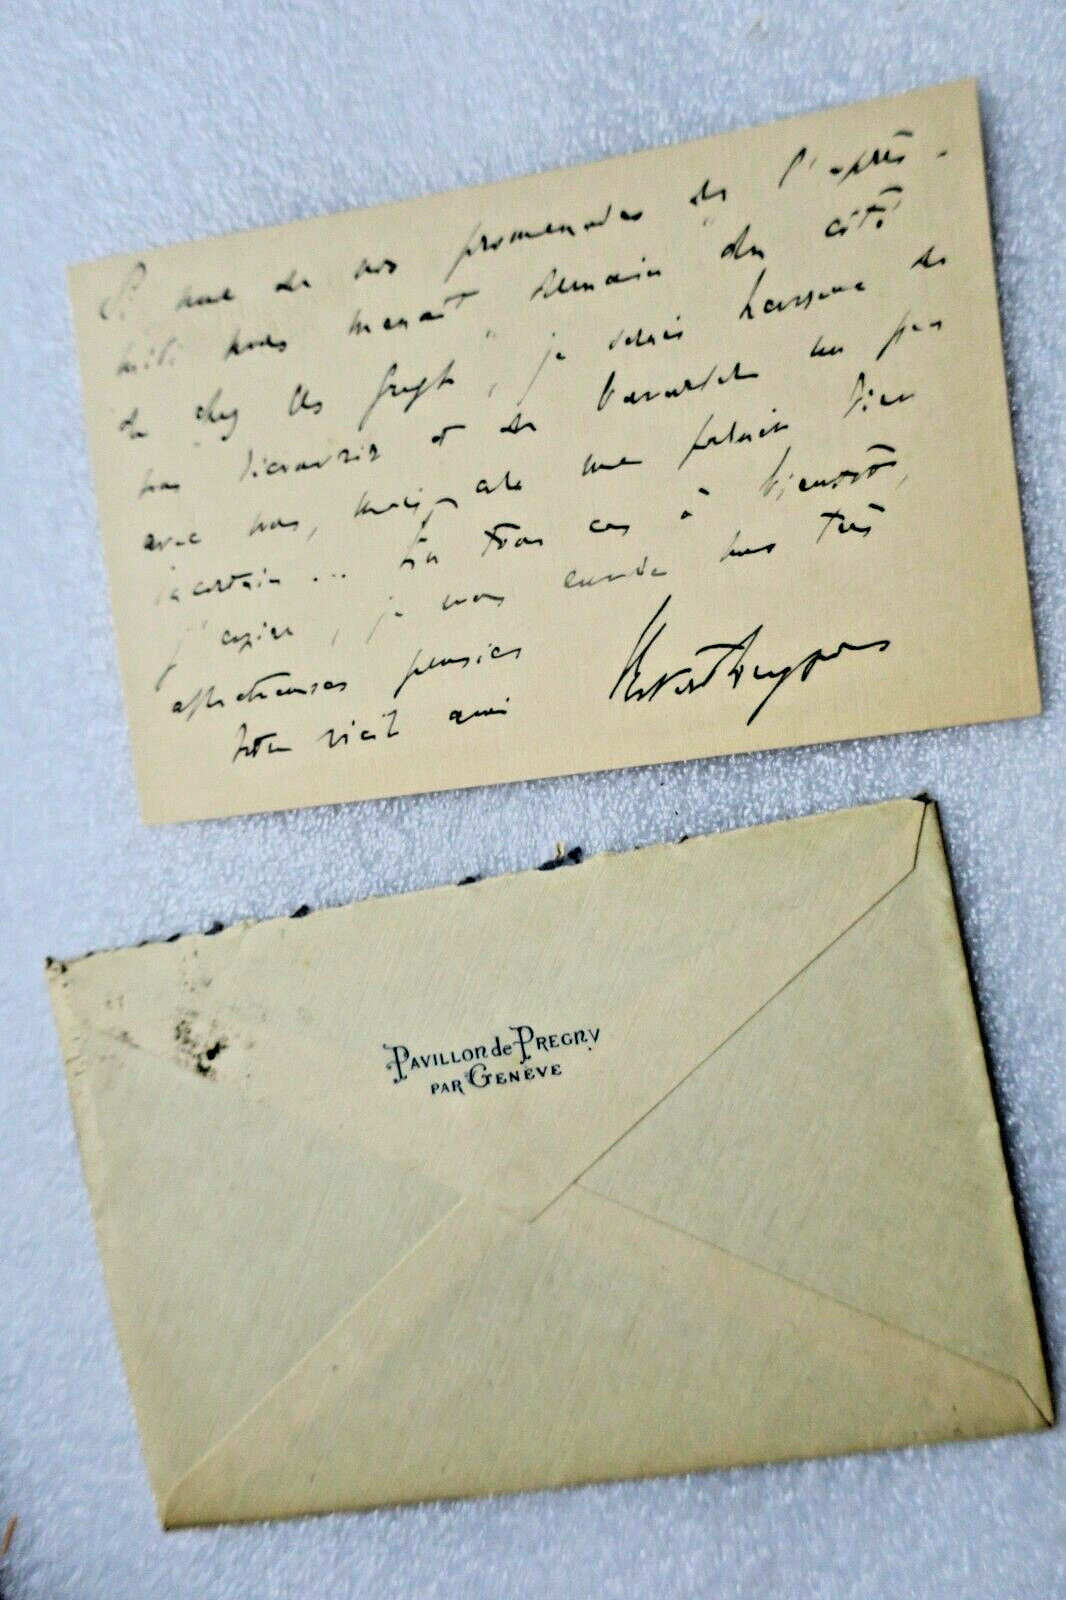 Si une de nos promenades de l'après-
midi nous menait demain du côté
de chez les je serais heureuse de
vous et de bavarder un peu
avec vous, mais cela me paraît bien
incertain... En tous cas à bientôt,
j'espère, je vous envoie mes très
affectueuses pensées
Votre vieil ami
PAVILLON de PREGNY
PAR GENÈVE